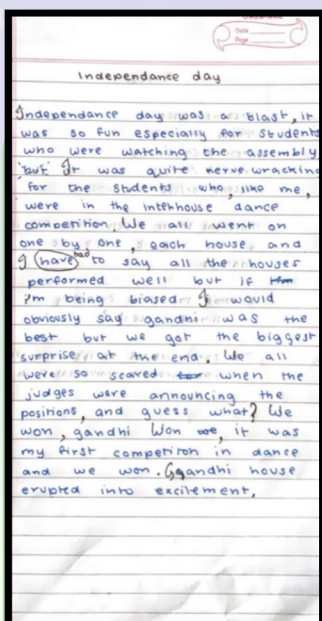 Date
Page
Independance day
Independance day was a blast, it
was so fun especially for students
who were watching the assembly
"but" It was quite nerve wracking
for the students who, like me,
were in the interhouse dance
competition. We all went on
one by one, each house, and
I have had to say all the houses
performed well but if
i'm being biased I would
obviously say gandhi was the
best but we got the biggest
surprise at the end. We all
were so scared when the
judges were announcing the
positions, and guess what? We
won, gandhi won, it was
my first competiton in dance
and we won. Gandhi house
erupted into excitement.